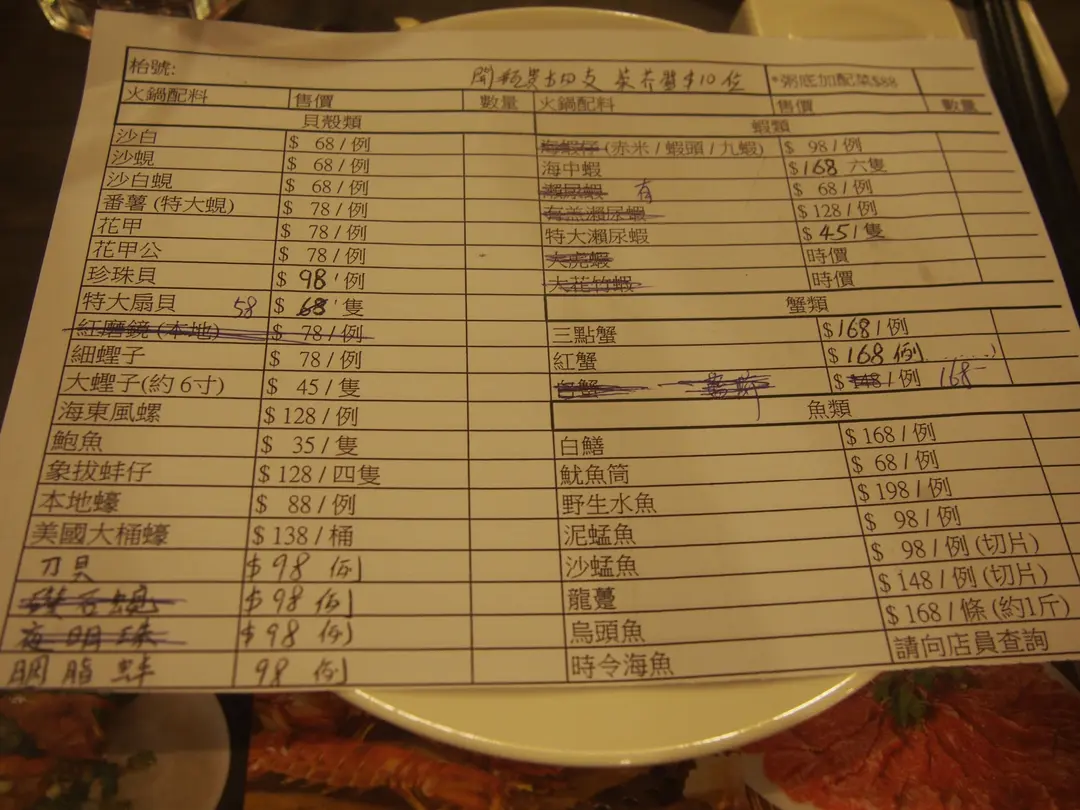 枱號:
開瓶費 $40 支 芥醬 $10 位
*粥底加配菜$88
火鍋配料 售價 數量
貝殼類
沙白 $ 68 / 例
沙蜆 $ 68 / 例
沙白蜆 $ 68 / 例
番薯 (特大蜆) $ 78 / 例
花甲 $ 78 / 例
花甲公 $ 78 / 例
珍珠貝 $ 98 / 例
特大扇貝 58 $ 68 / 隻
紅磨鏡 (本地) $ 78 / 例
細蟶子 $ 78 / 例
大蟶子(約 6寸) $ 45 / 隻
海東風螺 $ 128 / 例
鮑魚 $ 35 / 隻
象拔蚌仔 $ 128 / 四隻
本地蠔 $ 88 / 例
美國大桶蠔 $ 138 / 桶
刀貝 $ 98 例
$ 98 例
夜明珠 $ 98 例
胭脂蚌 98 例
火鍋配料 售價 數量
蝦類
海蝦仔 (赤米 / 蝦頭 / 九蝦) $ 98 / 例
海中蝦 $ 168 六隻
瀨尿蝦 有 $ 68 / 例
有羔瀨尿蝦 $ 128 / 例
特大瀨尿蝦 $ 45 / 隻
大虎蝦 時價
大花竹蝦 時價
蟹類
三點蟹 $ 168 / 例
紅蟹 $ 168 例
白蟹 $ 148 / 例 168
魚類
白鱔 $ 168 / 例
魷魚筒 $ 68 / 例
野生水魚 $ 198 / 例
泥蜢魚 $ 98 / 例
沙蜢魚 $ 98 / 例 (切片)
龍躉 $ 148 / 例 (切片)
烏頭魚 $ 168 / 條 (約1斤)
時令海魚 請向店員查詢